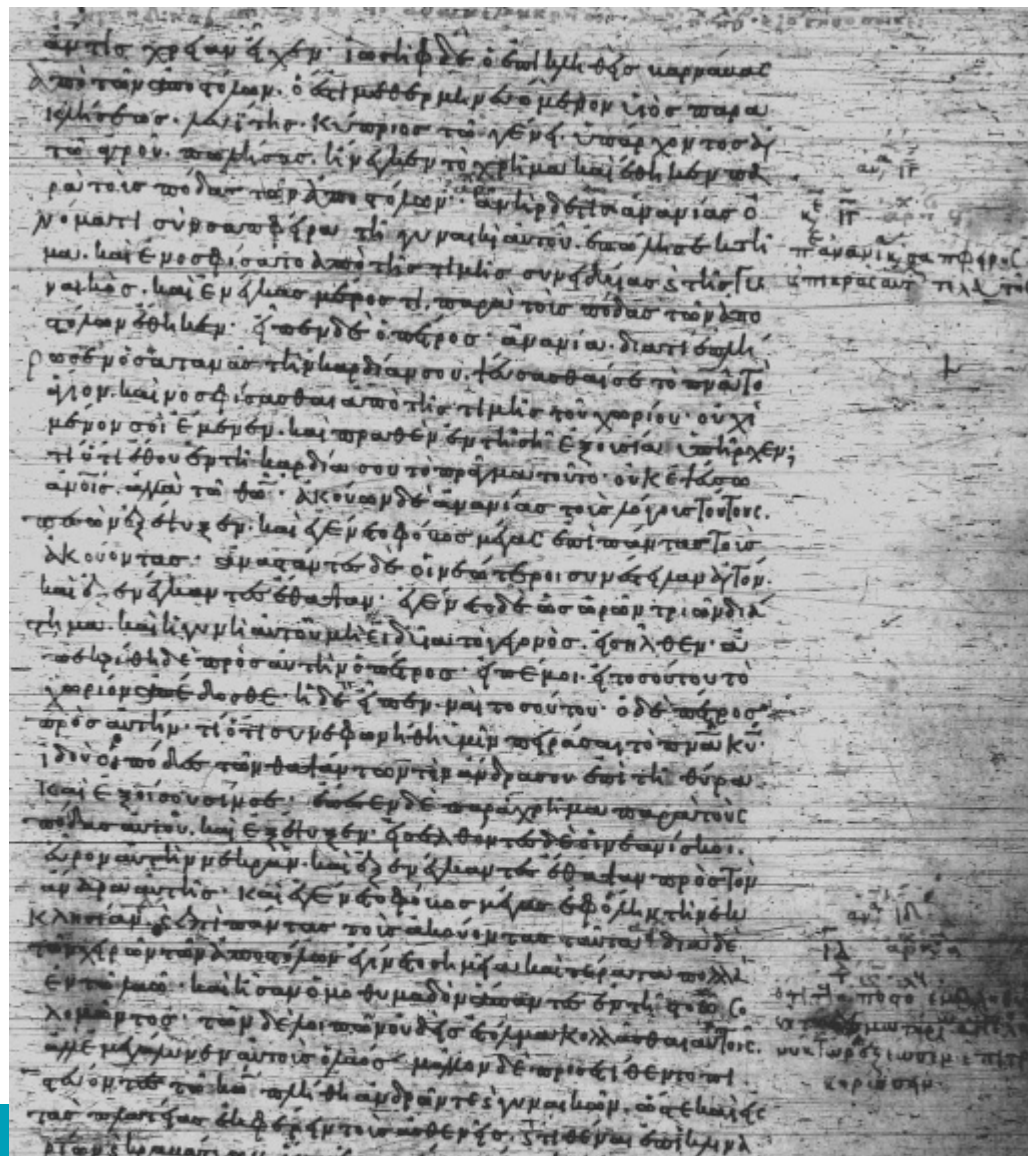 ἄν τις χρείαν εἶχεν· ἰωσὴφ δὲ ὁ ἐπικληθεὶς βαρνάβας
ἀπὸ τῶν ἀποστόλων. ὅ ἐστι μεθερμηνευόμενον υἱὸς παρα
κλήσεως. λευΐτης. κύπριος τῶ γένει. ὑπάρχοντος αὐ
τῶ ἀγροῦ. πωλήσας. ἤνεγκεν τὸ χρῆμα καὶ ἔθηκεν πα
ρὰ τοὺς πόδας τῶν ἀποστόλων· ἀνὴρ δέ τις ἀνανίας ὀ
νόματι σὺν σαπφείρα τῆ γυναικὶ αὐτοῦ. ἐπώλησε κτῆ
μα. καὶ ἐνοσφίσατο ἀπὸ τῆς τιμῆς συνειδυίας ϗ τῆς γυ
ναικὸς. καὶ ἐνέγκας μέρος τι. παρὰ τοὺς πόδας τῶν ἀπο
στόλων ἔθηκεν· εἶπεν δὲ ὁ πέτρος· ἀνανία. διατί ἐπλή
ρωσεν ὁ σατανᾶς τὴν καρδίαν σου. ψεύσασθαί σε τὸ πνα τὸ
ἅγιον. καὶ νοσφίσασθαι ἀπὸ τῆς τιμῆς τοῦ χωρίου· οὐχὶ
μένον σοὶ ἔμενεν. καὶ πραθὲν ἐν τῆ σῆ ἐξουσία ὑπῆρχεν;
τί ὅτι ἔθου ἐν τῆ καρδία σου τὸ πρᾶγμα τοῦτο· οὐκ ἐψεύσω
ἀνοις. ἀλλὰ τῶ θω· ἀκούων δὲ ἀνανίας τοὺς λόγους τούτους.
πεσὼν ἐξέψυξεν. καὶ ἐγένετο φόβος μέγας ἐπὶ πάντας τοὺς
ἀκούοντας· ἀναστάντες δὲ οἱ νεώτεροι συνέστειλαν αὐτόν.
καὶ ἐξενέγκαντες ἔθαψαν· ἐγένετο δὲ ὡς ὡρῶν τριῶν διά
στημα. καὶ ἡ γυνὴ αὐτοῦ μὴ εἰδυῖα τὸ γεγονὸς. εἰσῆλθεν· ἀ
πεκρίθη δὲ πρὸς αὐτὴν ὁ πέτρος· εἰπέ μοι. εἰ τοσούτου τὸ
χωρίον ἀπέδοσθε· ἡ δὲ εἶπεν. ναὶ τοσούτου· ὁ δὲ πέτρος
πρὸς αὐτήν. τί ὅτι συνεφωνήθη ὑμῖν πειράσαι τὸ πνα κυ·
ἰδοὺ οἱ πόδες τῶν θαψάντων τὸν ἄνδρα σου ἐπὶ τῆ θύρα
καὶ ἐξοίσουσίν σε· ἔπεσεν δὲ παράχρημα παρὰ τοὺς
πόδας αὐτοῦ. καὶ ἐξέψυξεν· εἰσελθόντες δὲ οἱ νεανίσκοι.
εὗρον αὐτὴν νεκρὰν. καὶ ἐξενέγκαντες ἔθαψαν πρὸς τὸν
ἄνδρα αὐτῆς· καὶ ἐγένετο φόβος μέγας ἐφ' ὅλην τὴν ἐκ
κλησίαν. ϗ ἐπὶ πάντας τοὺς ἀκούοντας ταῦτα· διὰ δὲ
τῶν χειρῶν τῶν ἀποστόλων ἐγίνετο σημεῖα καὶ τέρατα πολλὰ
ἐν τῶ λαῶ. καὶ ἦσαν ὁμοθυμαδὸν ἅπαντες ἐν τῆ στοᾶ σο
λομῶντος· τῶν δὲ λοιπῶν οὐδεὶς ἐτόλμα κολλᾶσθαι αὐτοῖς.
ἀλλ' ἐμεγάλυνεν αὐτοὺς ὁ λαός· μᾶλλον δὲ προσετίθεντο πι
στεύοντες τῶ κω πλήθη ἀνδρῶν τε ϗ γυναικῶν. ὥστε καὶ εἰς
τὰς πλατείας ἐκφέρειν τοὺς ἀσθενεῖς. ϗ τιθέναι ἐπὶ κλινα